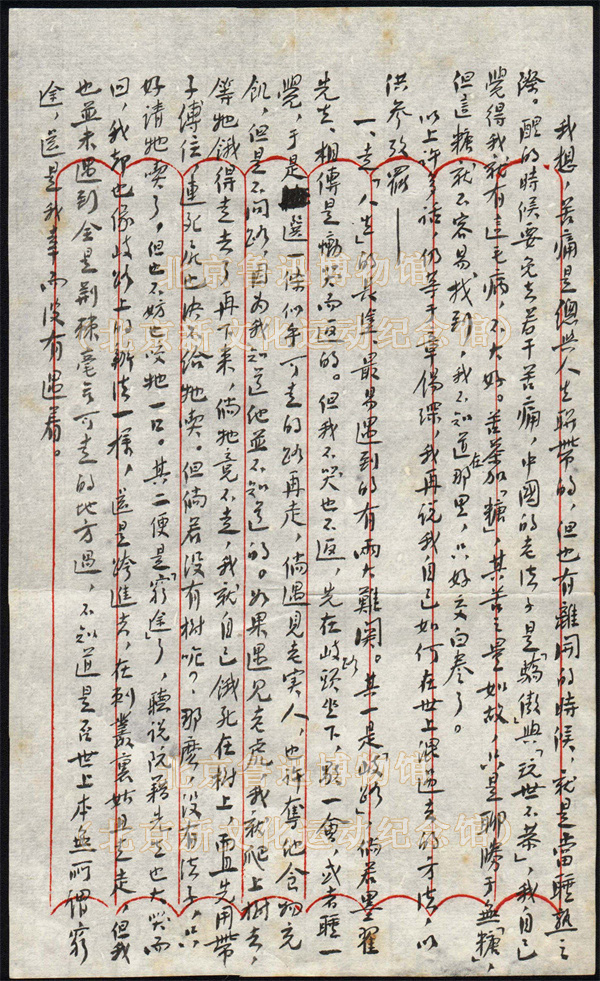 我想,苦痛是總與人生聯帶的,但也有離開的時候,就是當睡熟之
際。醒的時候要免去若干苦痛,中國的老法子是「驕傲」與「玩世不恭」,我自己
覺得我就有這毛病,不大好。苦茶加「糖」,其苦之量如故,只是聊勝于無「糖」,
但這糖就不容易找到,我不知道在那里,只好交白卷了。
以上許多話,仍等于章錫琛,我再說我自己如何在世上混過去的方法,以
供參攷罷——
一、走「人生」的長途,最易遇到的有兩大難關。其一是「岐路」,倘若墨翟
先生,相傳是慟哭而返的。但我不哭也不返,先在岐路頭坐下,歇一會,或者睡一
覺,于是選一條似乎可走的路再走,倘遇見老実人,也許奪他食物充
飢,但是不問路,因為我知道他並不知道的。如果遇見老虎,我就爬上樹去,
等牠餓得走去了再下來,倘牠竟不走,我就自己餓死在樹上,而且先用帶
子縛住,連死屍也決不給牠喫。但倘若沒有樹呢?那麼,沒有法子,只
好請牠喫了,但也不妨也咬牠一口。其二便是「窮途」了,聽說阮籍先生也大哭而
回,我却也像岐路上的辦法一樣,還是跨進去,在刺叢裏姑且走走,但我
也並未遇到全是荊棘毫無可走的地方過,不知道是否世上本無所謂窮
途,還是我幸而沒有遇着。
北京鲁迅博物馆
(北京新文化运动纪念馆)
北京鲁迅博物馆
(北京新文化运动纪念馆)